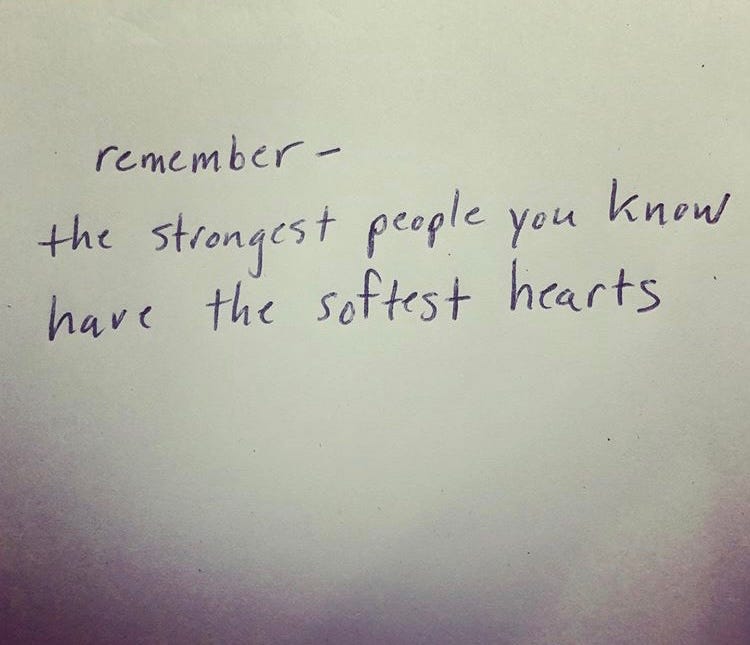 remember -
the strongest people you know
have the softest hearts